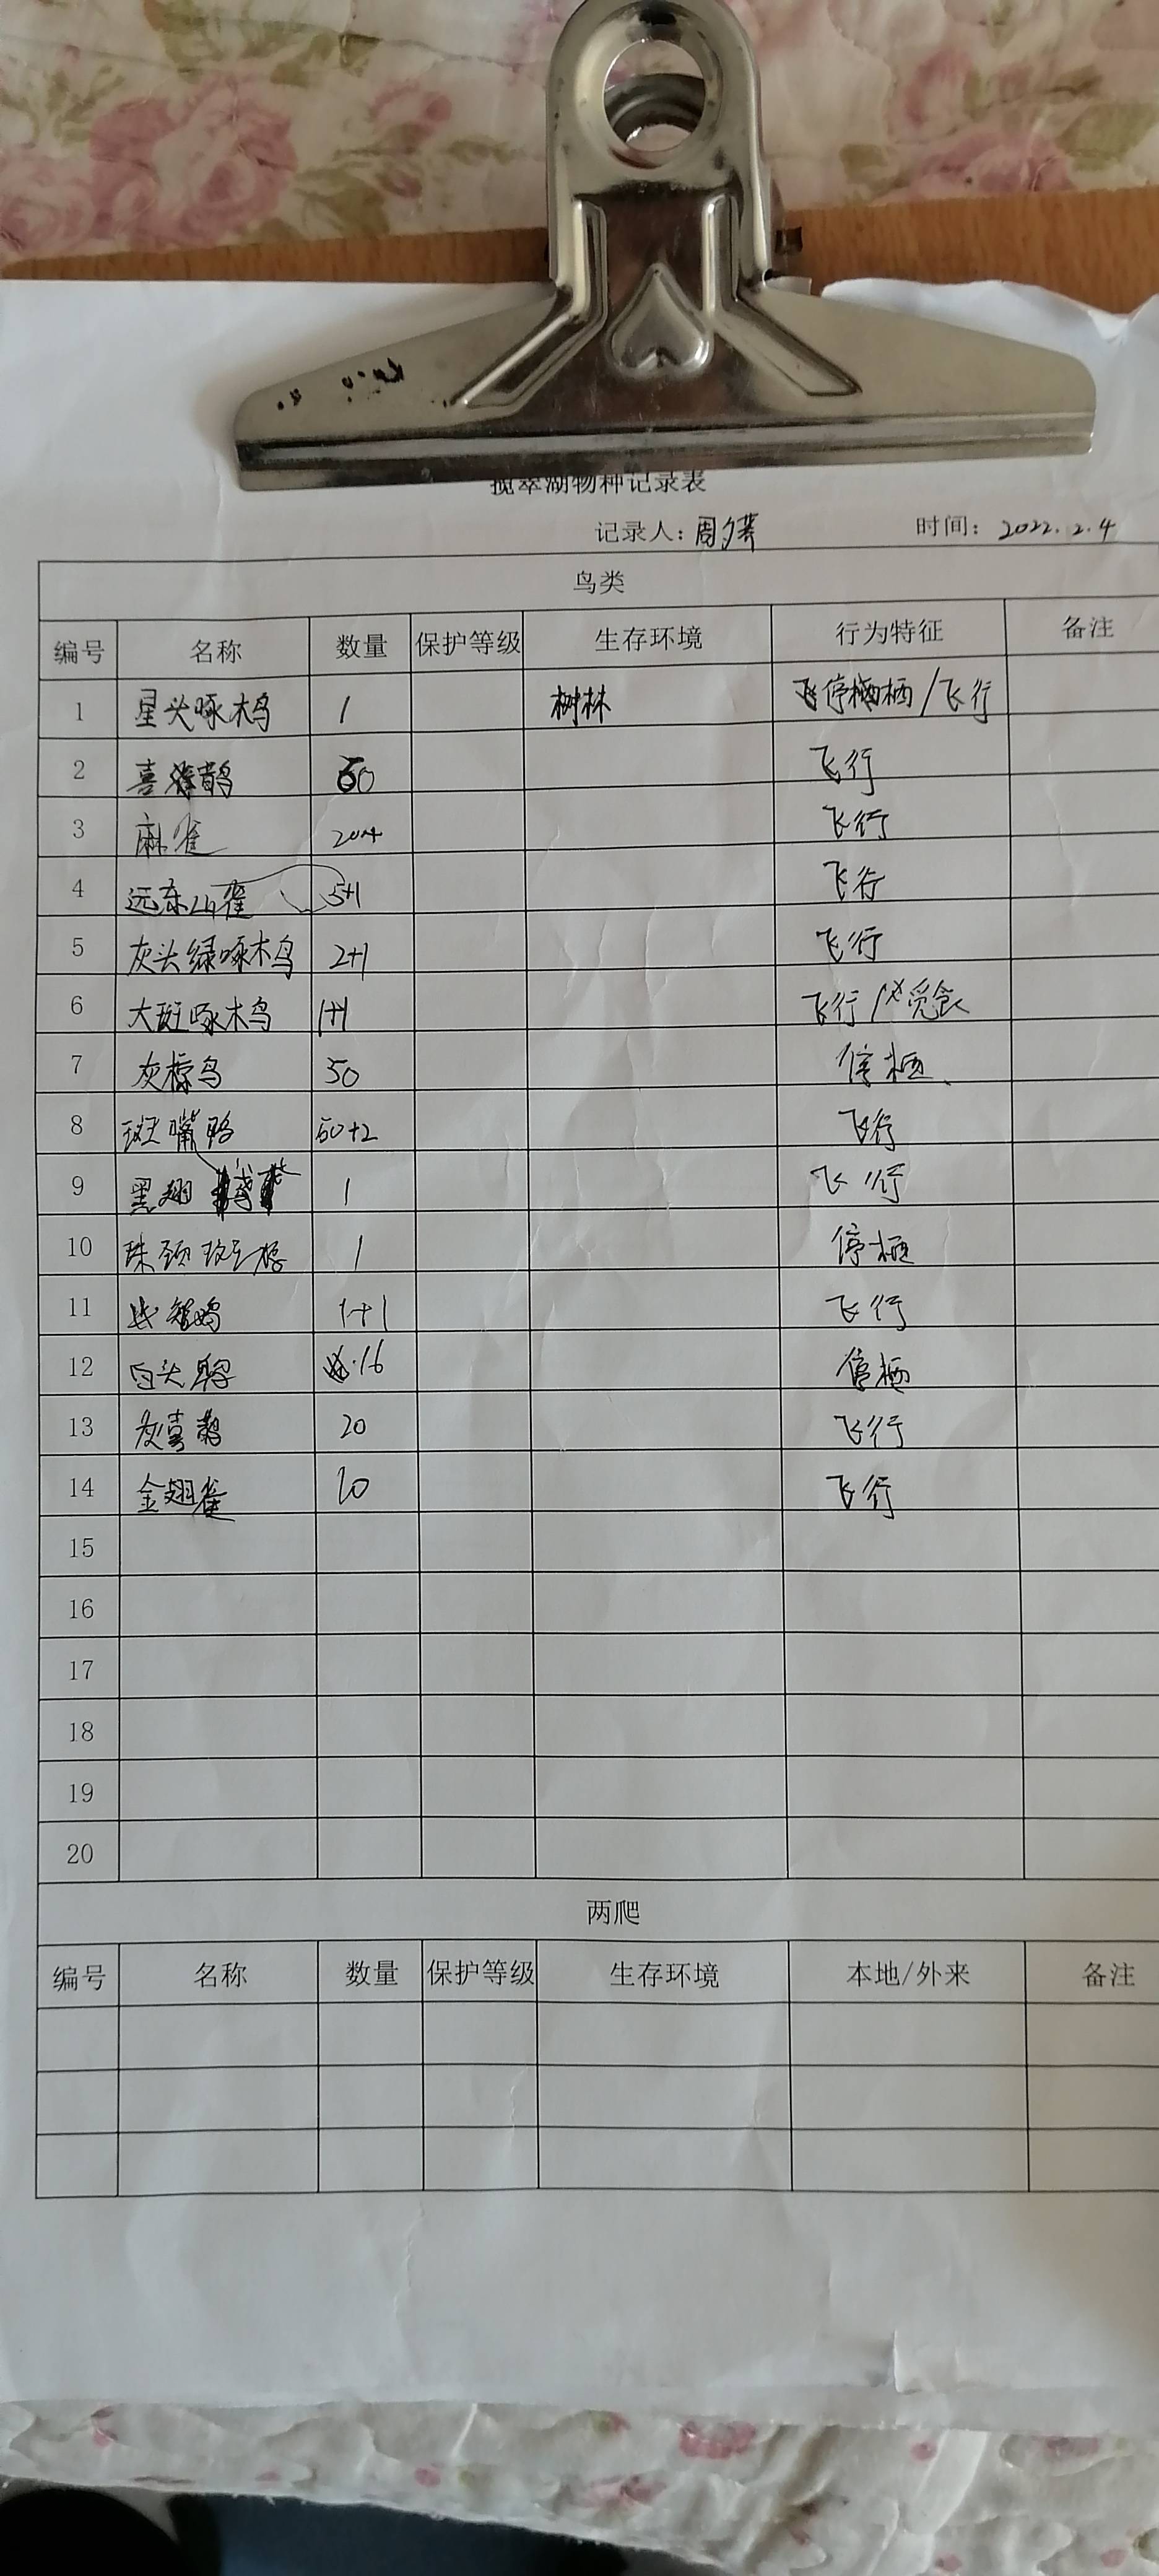 揽翠湖物种记录表
记录人: 周夕 时间: 2022.2.4
鸟类
编号 名称 数量 保护等级 生存环境 行为特征 备注
1 星头啄木鸟 1 树林 停栖/飞行
2 喜鹊 60 飞行
3 麻雀 飞行
4 远东山雀 5+1 飞行
5 灰头绿啄木鸟 2+1 飞行
6 大斑啄木鸟 1+1 飞行/觅食
7 灰椋鸟 50 停栖
8 斑嘴鸭 50+2 飞行
9 黑翅鸢 1 飞行
10 珠颈斑 1 停栖
11 1+1 飞行
12 白头鹎 16 停栖
13 灰喜鹊 20 飞行
14 金翅雀 10 飞行
15
16
17
18
19
20
两爬
编号 名称 数量 保护等级 生存环境 本地/外来 备注